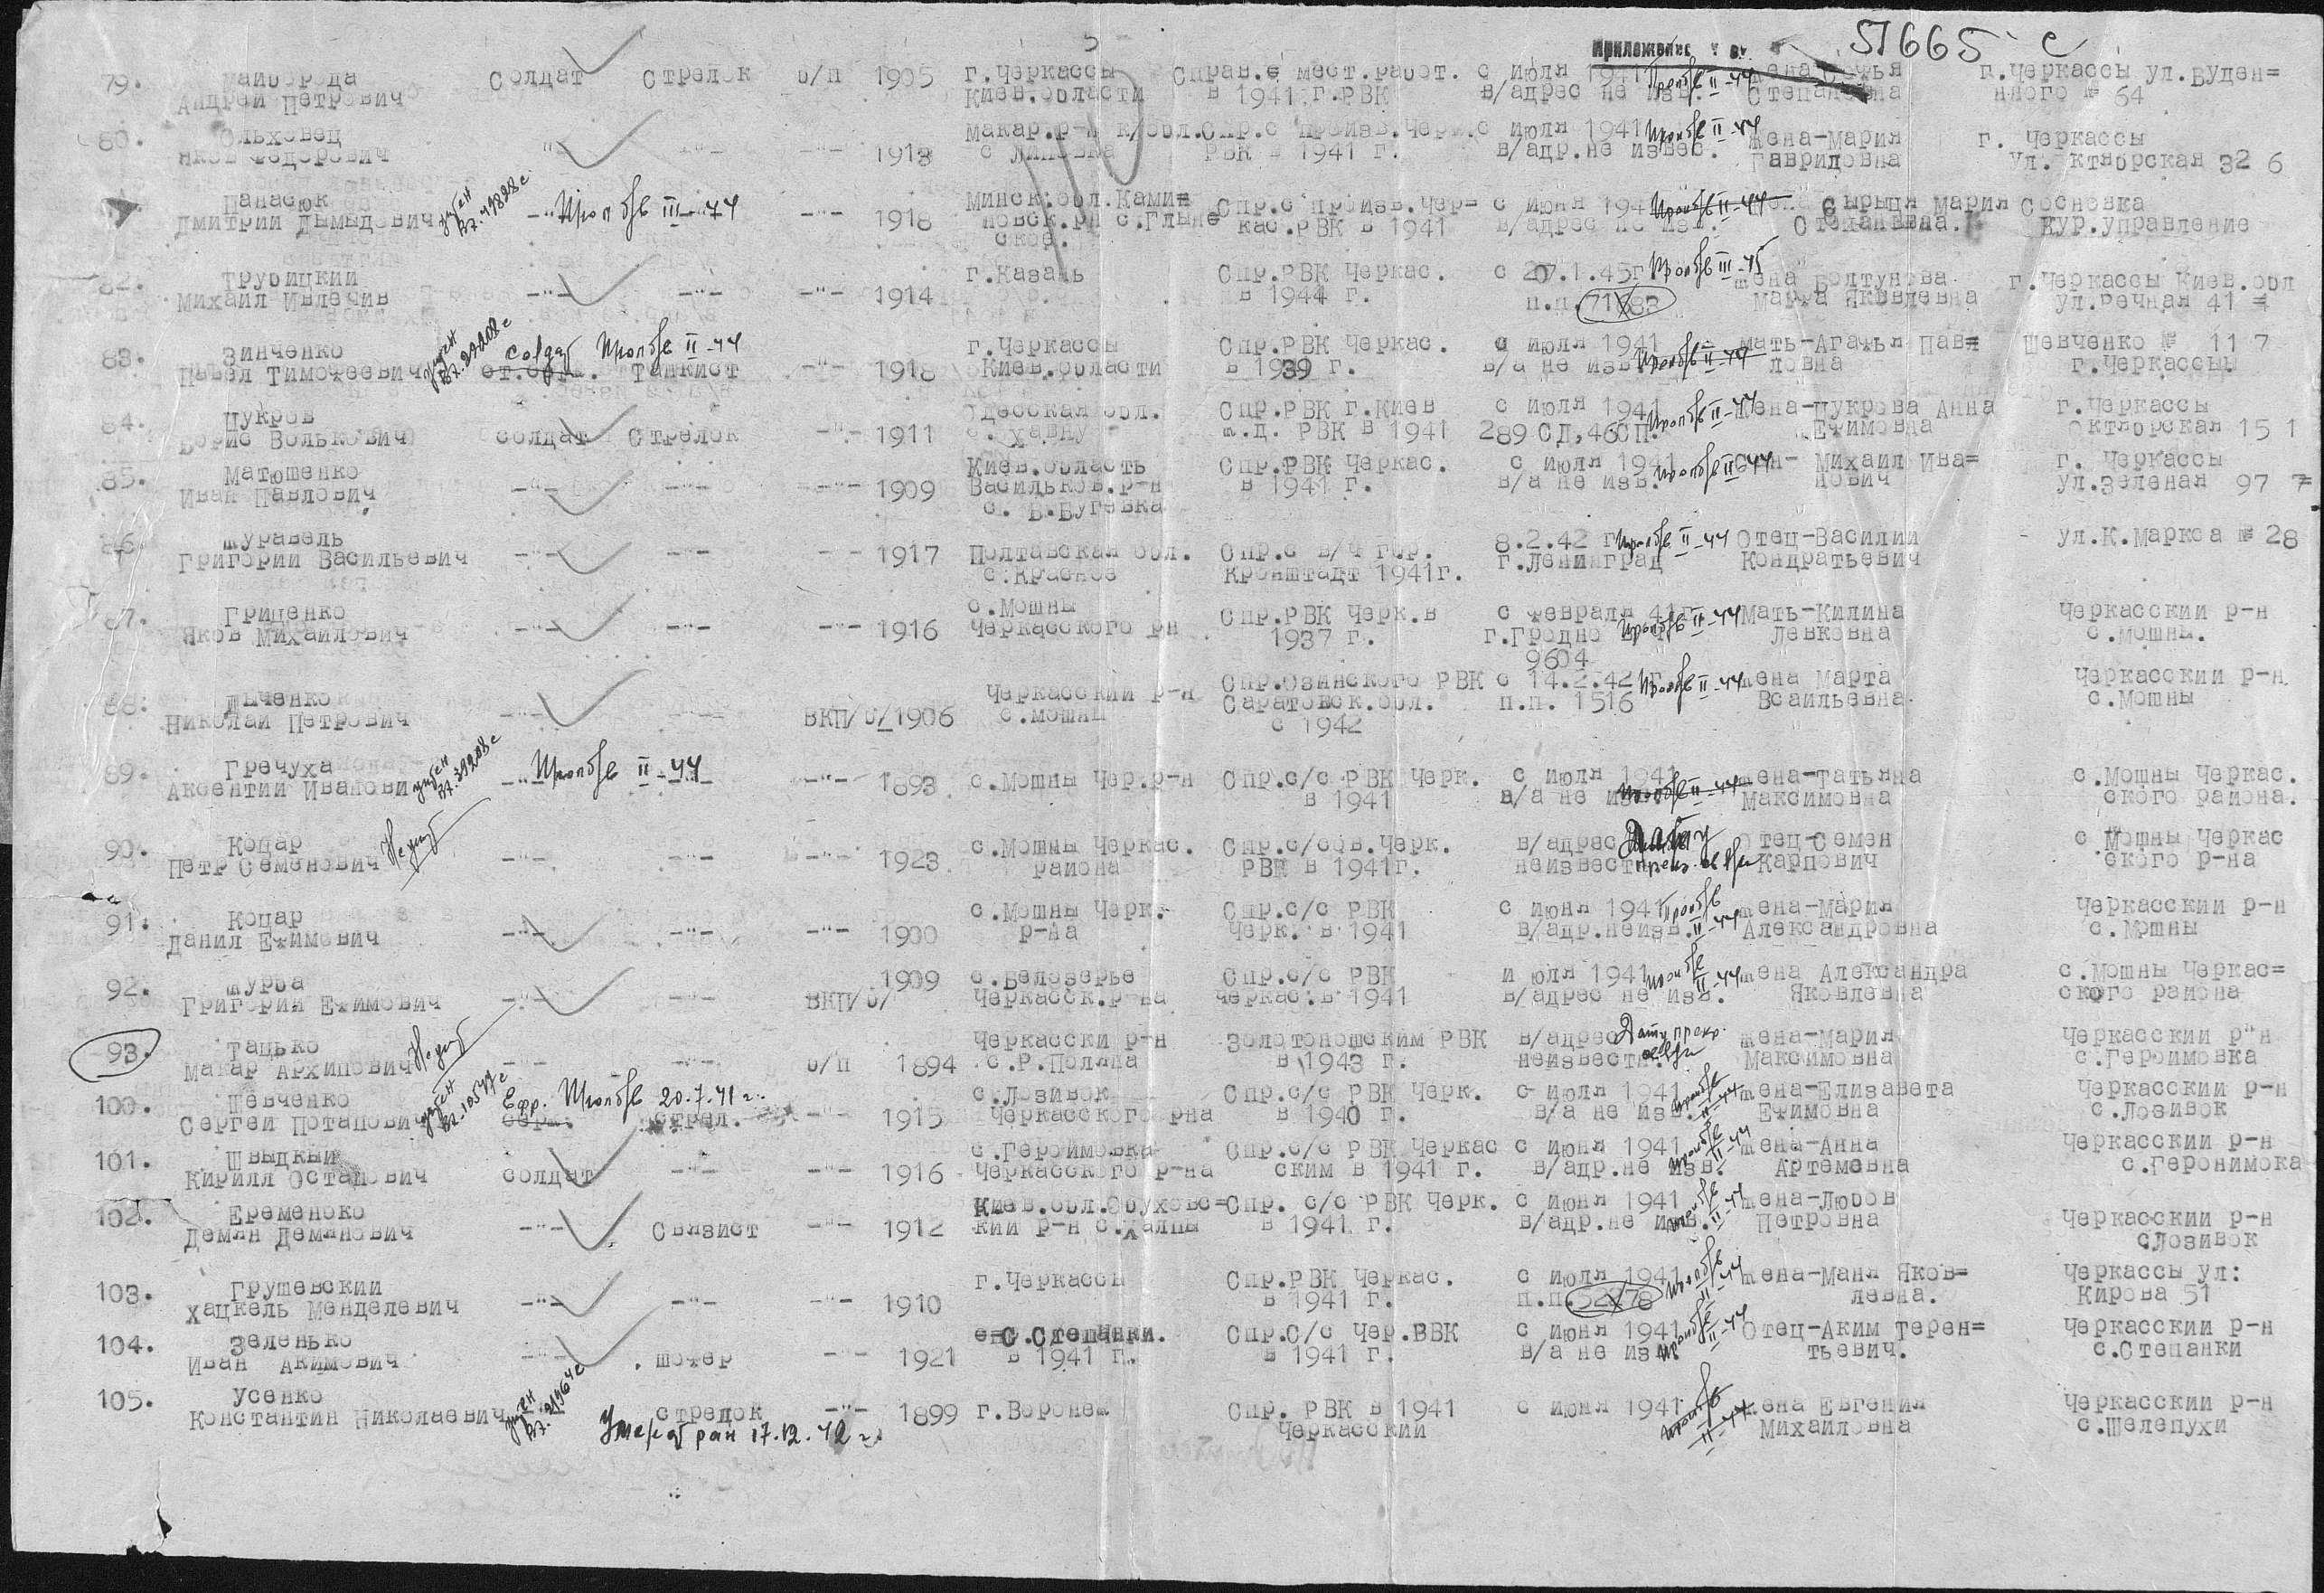 51665 с
79. Майборода Солдат Стрелок б/п 1905 г.Черкассы Справ.с мест.работ. с июля 1941 Проп б/в II-44 жена-Софья г.Черкассы ул.Буден=
Андрей Петрович Киев.области в 1941 г.РВК в/адрес не изв. Степановна нного № 64
80. Ольховец -"- -"- -"- 1913 Макар.р-н к/обл. Спр.с произв.Черк. с июля 1941 Проп б/в II-44 жена-Мария г. Черкассы
Яков Федорович с Липовка РВК в 1941 г. в/адр.не извес. Гавриловна ул. ктяорская 32 6
Панасюк -"- Проп б/в III-44 -"- 1918 Минск.обл.Ками= Спр.с произв.Чер= с июня 194 Проп б/в II-44 Сырыця Мария Сосновка
Дмитрий Дымыдович учтен вх.49828с новск.рн с.Глыне кас.РВК в 1941 в/адрес не изв. Степановна. Кур.управление
ское.
82. Трубицкий -"- -"- -"- 1914 г.Казань Спр.РВК Черкас. с 27.1.45г Проп б/в III-45 жена Болтунова г.Черкассы Киев.обл
Михаил Ивлечив в 1944 г. п.п. 71183 Марфа Яковлевна ул.речная 41 =
83. Зинченко солдат Проп б/в II-44 -"- 1918 г.Черкассы Спр.РВК Черкас. с июля 1941 - мать-Агафья Пав= Шевченко № 11 7
Павел Тимофеевич ст.серж. Танкист Киев.области в 1939 г. в/а не изв. Проп б/в II-44 ловна г.Черкассы
84. Цукров солдат Стрелок -"- 1911 Одесская обл. Спр.РВК г.Киев с июля 1941 Проп б/в II-44 Жена-Цукрова Анна г.Черкассы
Борис Волькович с. Хащну ж.д. РВК в 1941 289 СД,46СП. Ефимовна Октяорская 15 1
85. Матюшенко -"- -"- -"- 1909 Киев.область Спр.РВК Черкас. с июля 1941 Проп б/в II-44 Сын- Михаил Ива= г. Черкассы
Иван Павлович Васильков.р-н в 1941 г. в/а не изв. нович ул.Зеленая 97 7=
с. Б.Бугевка
86. журавель -"- -"- - - 1917 Полтавская обл. Спр.с в/ч гор. 8.2.42 г Проп б/в II-44 Отец-Василий ул.К.Маркса № 28
Григорий Васильевич с.Красное Кронштадт 1941г. г.Ленинград Кондратьевич
87. Гриценко -"- -"- -"- 1916 с.Мошны Спр.РВК Черк.в с февраля 41г. Проп б/в II-44 Мать-Килина Черкасский р-н
Яков Михайлович Черкасского рн 1937 г. г.Гродно Левковна с.Мошны.
9604
88. Дыченко -"- -"- ВКП/б/ 1906 Черкасский р-н Спр.Озинского РВК с 14.2.42 г Проп б/в II-44 жена Марта Черкасский р-н
Николай Петрович с.мошны Саратовск.обл. п.п. 1516 Всаильевна с.Мошны
с 1942
89. Гречуха -"- Проп б/в II-44 -"- 1893 с.Мошны Чер.р-н Спр.с/с РВК Черк. с июля 1941 жена-Татьяна с.Мошны Черкас.
Аксентий Иванови учтен вх.39208с в 1941 в/а не изв. Проп б/в II-44 Максимовна ского района.
90. Коцар Не учт -"- -"- -"- 1923 с.Мошны Черкас. Спр.с/сов.Черк. в/адрес Дату Отец-Семен с Мошны Черкас
Петр Семенович района РВК в 1941г. неизвест. прек. связи Карпович ского р-на
91. Коцар -"- -"- -"- 1900 с.Мошны Черк. Спр.с/с РВК с июня 1941 Проп б/в II-44 жена-Мария Черкасский р-н
Данил Ефимович р-на Черк. в 1941 в/адр.неизв. Александровна с.Мошны
92. журба -"- -"- ВКП/б/ 1909 с.Белозерье Спр.с/с РВК и юля 1941 Проп б/в II-44 жена Александра с.Мошны Черкас=
Григорий Ефимович Черкасск.р-на Черкас.в 1941 в/адрес не изв. Яковлевна ского района
93. Тацько Не учт - - -"- б/п 1894 Черкасски р-н Золотоношским РВК в/адрес Дату прекр. связи жена-Мария Черкасский р"н
Макар Архипович с.Р.Поляна в 1943 г. неизвестн. Максимовна с.Героимовка
100. Шевченко Ефр. Проп б/в 20.7.41 г. -"- 1915 с.Лозивок Спр.с/с РВК Черк. с июля 1941 Проп б/в II-44 жена-Елизавета Черкасский р-н
Сергей Потапович серж. стрел. Черкасского рна в 1940 г. в/а не изв. Ефимовна с.Лозивок
101. Швыдкый солдат -"- -"- 1916 с.Героймовка Спр.с/с РВК Черкас с июня 1941 Проп б/в II-44 жена-Анна Черкасский р-н
Кирилл Остапович Черкасского р-на ским в 1941 г. в/адр.не изв. Артемовна с.Геронимока
102. Еременоко -"- Связист -"- 1912 Киев.обл.Обуховс= Спр. с/с РВК Черк. с июня 1941 Проп б/в II-44 жена-Любов Черкасский р-н
Демян Демянович кий р-н с.Халпы в 1941 г. в/адр.не изв. Петровна с.Лозивок
103. Грушевский -"- -"- -"- 1910 г.Черкассы Спр.РВК Черкас. с июля 1941 Проп б/в II-44 жена-Маня Яков= Черкассы ул:
Хацкель Менделевич в 1941 г. п.п. 52178 левна. Кирова 51
104. Зеленько -"- шофер - - 1921 С.Степанки. Спр.С/с Чер.ВВК с июня 1941 Проп б/в II-44 Отец-Аким Терен= Черкасский р-н
Иван Акимович в 1941 г. в 1941 г. в/а не изв. тьевич. с.Степанки
105. Усенко стрелок -"- 1899 г.Воронеж Спр. РВК в 1941 с июня 1941 Проп б/в II-44 жена Евгения Черкасский р-н
Константин Николаевич Умер от ран 17.12.42 г. Черкасский Михайловна с.Шелепухи